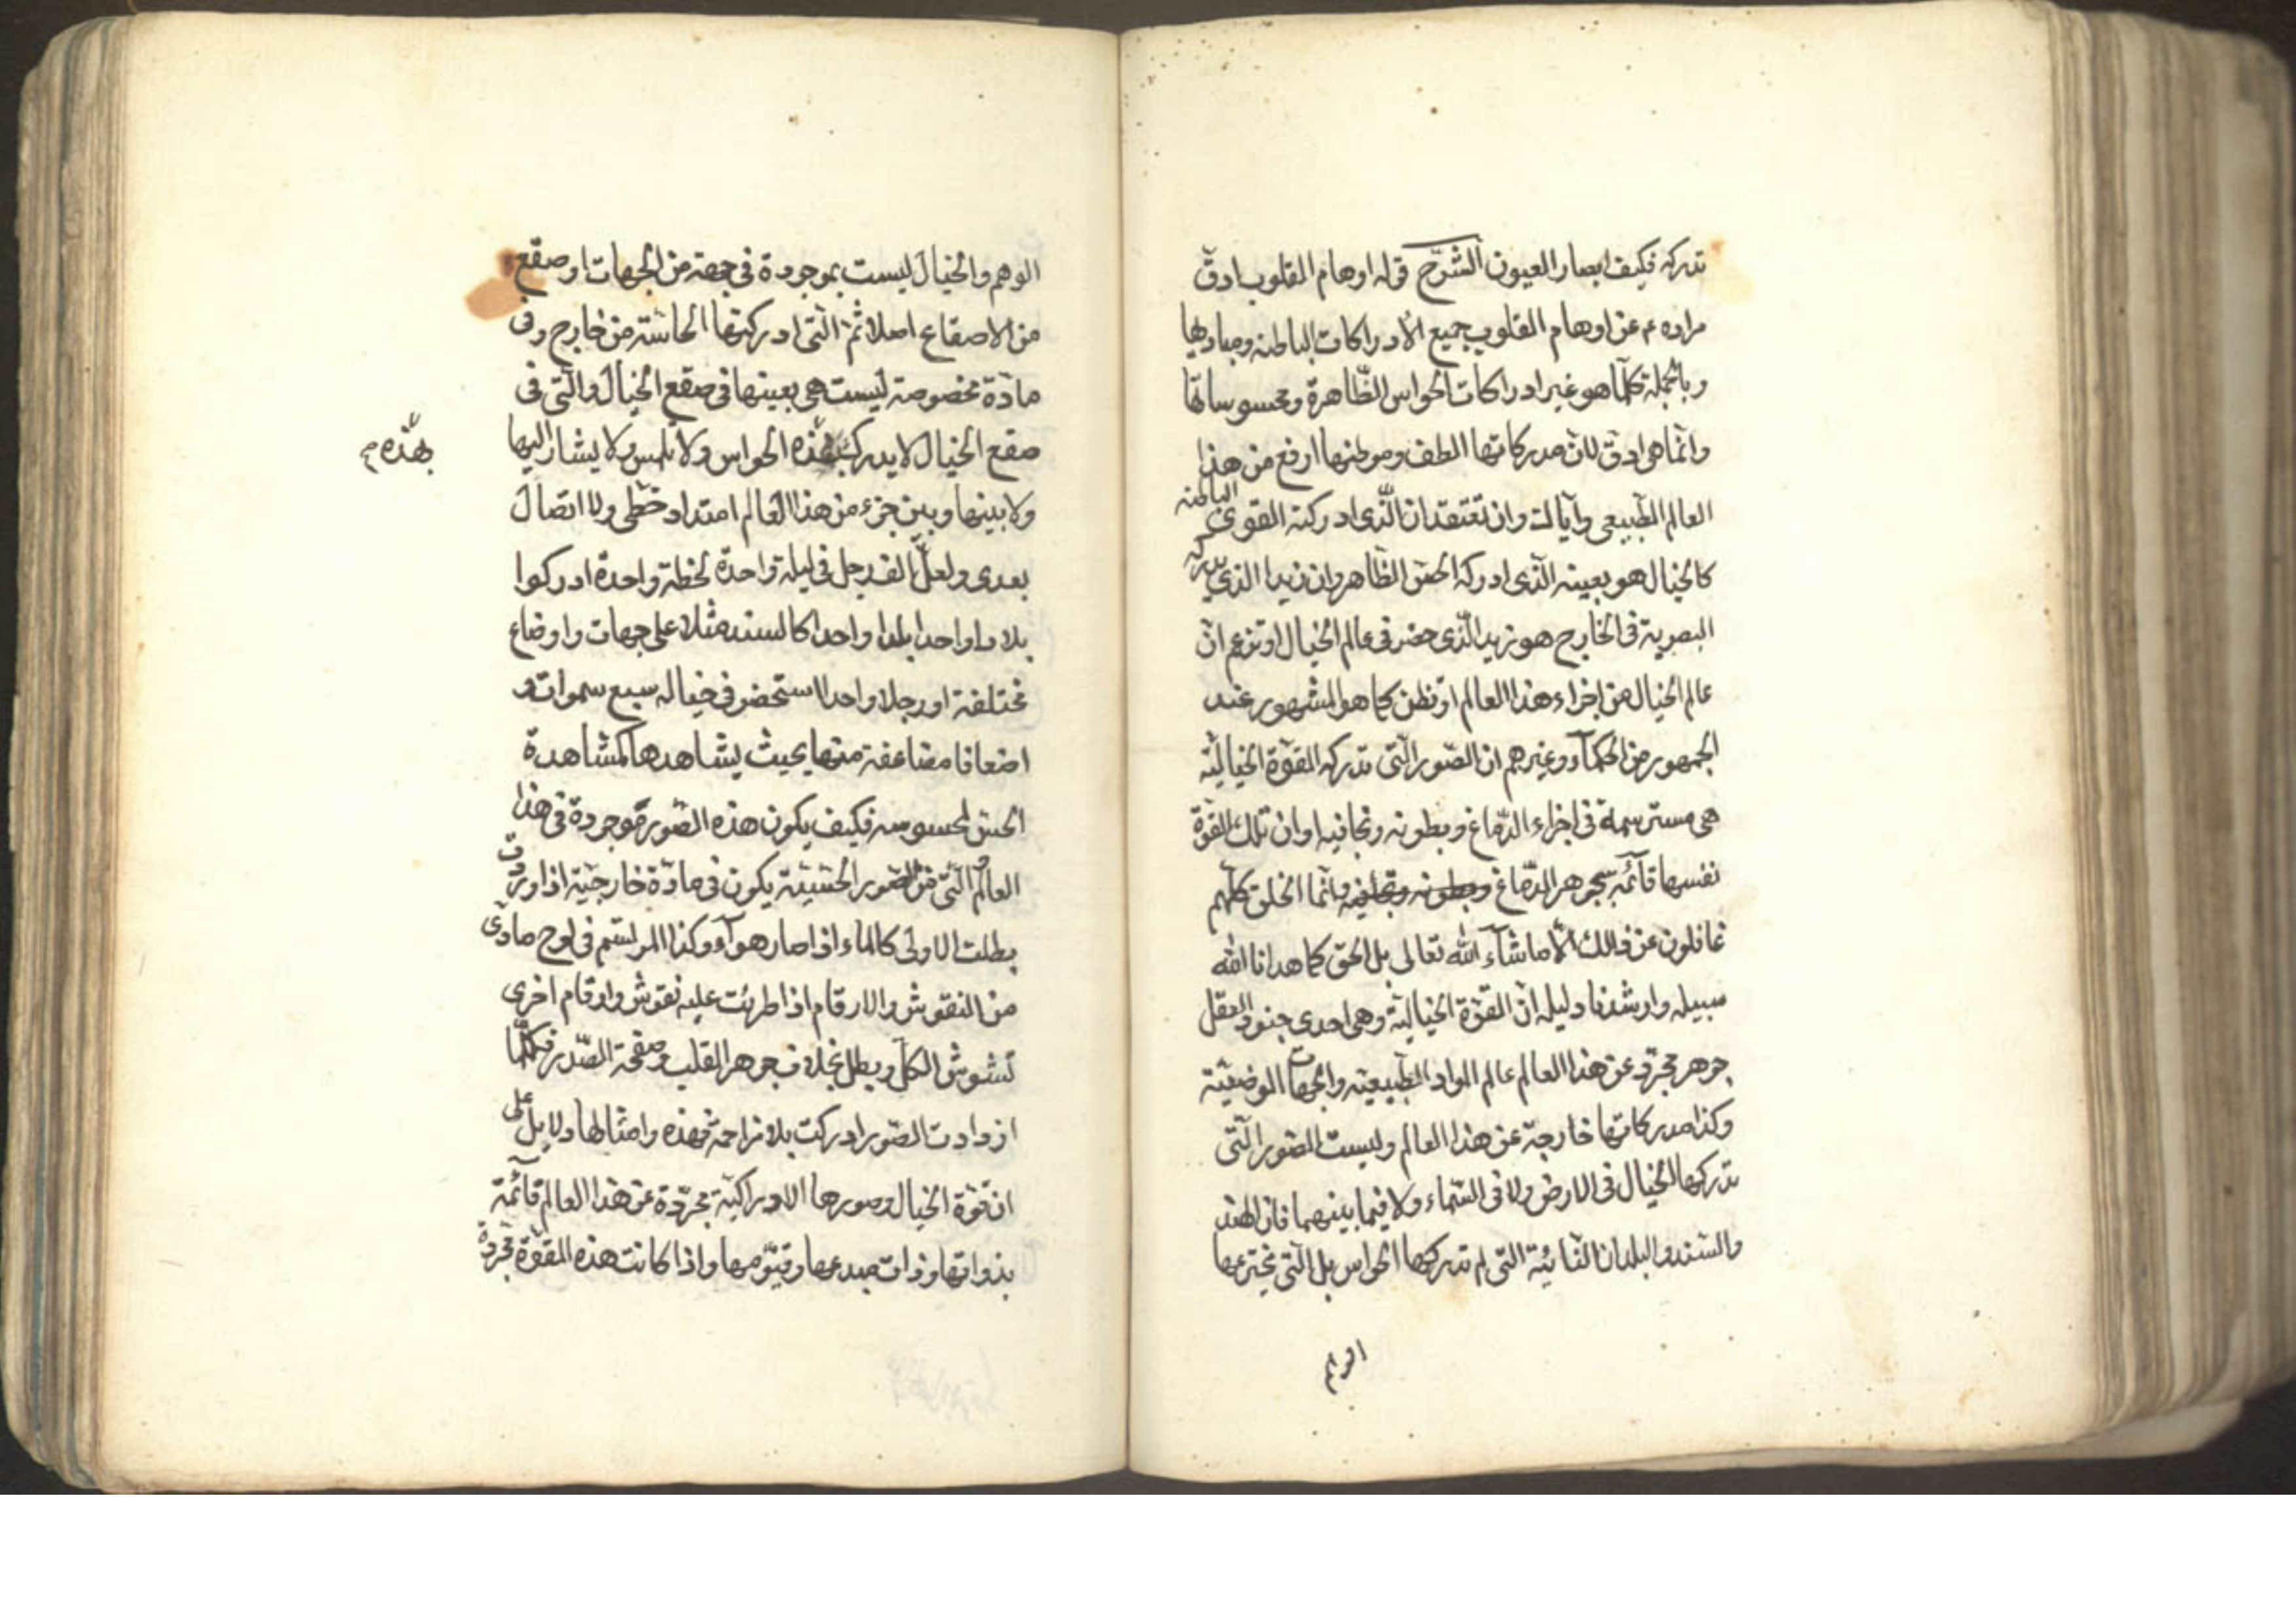 تدركه فكيف ابصار العيون الشرح قوله اوهام القلوب ادقّ
مراده ع عن اوهام القلوب جميع الادراكات الباطنه ومباديها
وبالجملة كلّما هو غير ادراكات الحواس الظّاهرة ومحسوساتها
وانّما هى ادقّ لانّ مدركاتها الطف وموطنها ارفع من هذا
العالم الطّبيعى وايّاك وان تعتقد ان الّذى ادركته القوى الباطنه
كالخيال هو بعينه الّذى ادركه الحسّ الظّاهر وان زيدا الذي يدركه
البصر يه فى الخارج هو زيد الّذى حضر فى عالم الخيال او تزعم انّ
عالم الخيال من اجزاء هذا العالم او تظن كما هو المشهور عند
الجمهور من الحكمآء وغيرهم ان الصّور الّتى تدركه القوّة الخياليّة
هى مسترسمة فى اجزاء الدّماغ وبطونه وتجافيه او ان تلك القوّة
نفسها قآئمة بجوهر الدّماغ وبطونه وتجافيه وانّما الخلق كلّهم
غافلون عن ذلك الّا ما شآء الله تعالى بل الحق كما هدانا الله
سبيله وارشدنا دليله انّ القوّة الخياليّة وهى احدى جنود العقل
جوهر مجرّد عن هذا العالم عالم المواد الطّبيعيّه والجهات الوضعيّة
وكذا مدركاتها خارجة عن هذا العالم وليست الصّور الّتى
تدركها الخيال فى الارض ولا فى السّماء ولا فيما بينهما فان الهند
والسّند والبلدان النائية التى لم تدركها الحواس بل الّتى تخترعها
الوهم
الوهم والخيال ليست بموجودة فى جهة من الجهات او صقع
من الاصقاع اصلا ثمّ الّتى ادركتها الحاسّة من خارج وفى
مادّة مخصوصة ليست هى بعينها فى صقع الخيال والّتى فى
صقع الخيال لا يدرك بهذه الحواس ولا تلمس ولا يشار اليها
بهذه
ولا بينها وبين جزء من هذا العالم امتداد خطى ولا اتصال
بعدى ولعلّ الف رجل فى ليلة واحدة لحظة واحدة ادركوا
بلادا واحدا بلدا واحدا كالسند مثلا على جهات واوضاع
مختلفة او رجلا واحدا استحضر فى خياله سبع سموات و
اضعافا مضاعفة منها بحيث يشاهدها كمشاهدة
الحسّ لمحسوسه فكيف يكون هذه الصّور موجودة فى هذا
العالم والّتى من الصّور الحسّيّة يكون فى مادّة خارجيّة اذا وردت
بطلت الاولى كالماء اذا صار هوآء وكذا المرتسم فى لوح مادّى
من النقوش والارقام اذا طرئت عليه نقوش وارقام اخرى
تشوش الكلّ وبطل بخلاف جوهر القلب وصفحة الصّدر فكلّما
ازدادت الصّور ادركت بلا تزاحمة فهذه وامثالها دلايل على
ان قوّة الخيال وصورها الادراكيّة مجرّدة عن هذا العالم قآئمة
بذواتها وذات مبدعها وقيّومها واذا كانت هذه القوّة مجرّدة